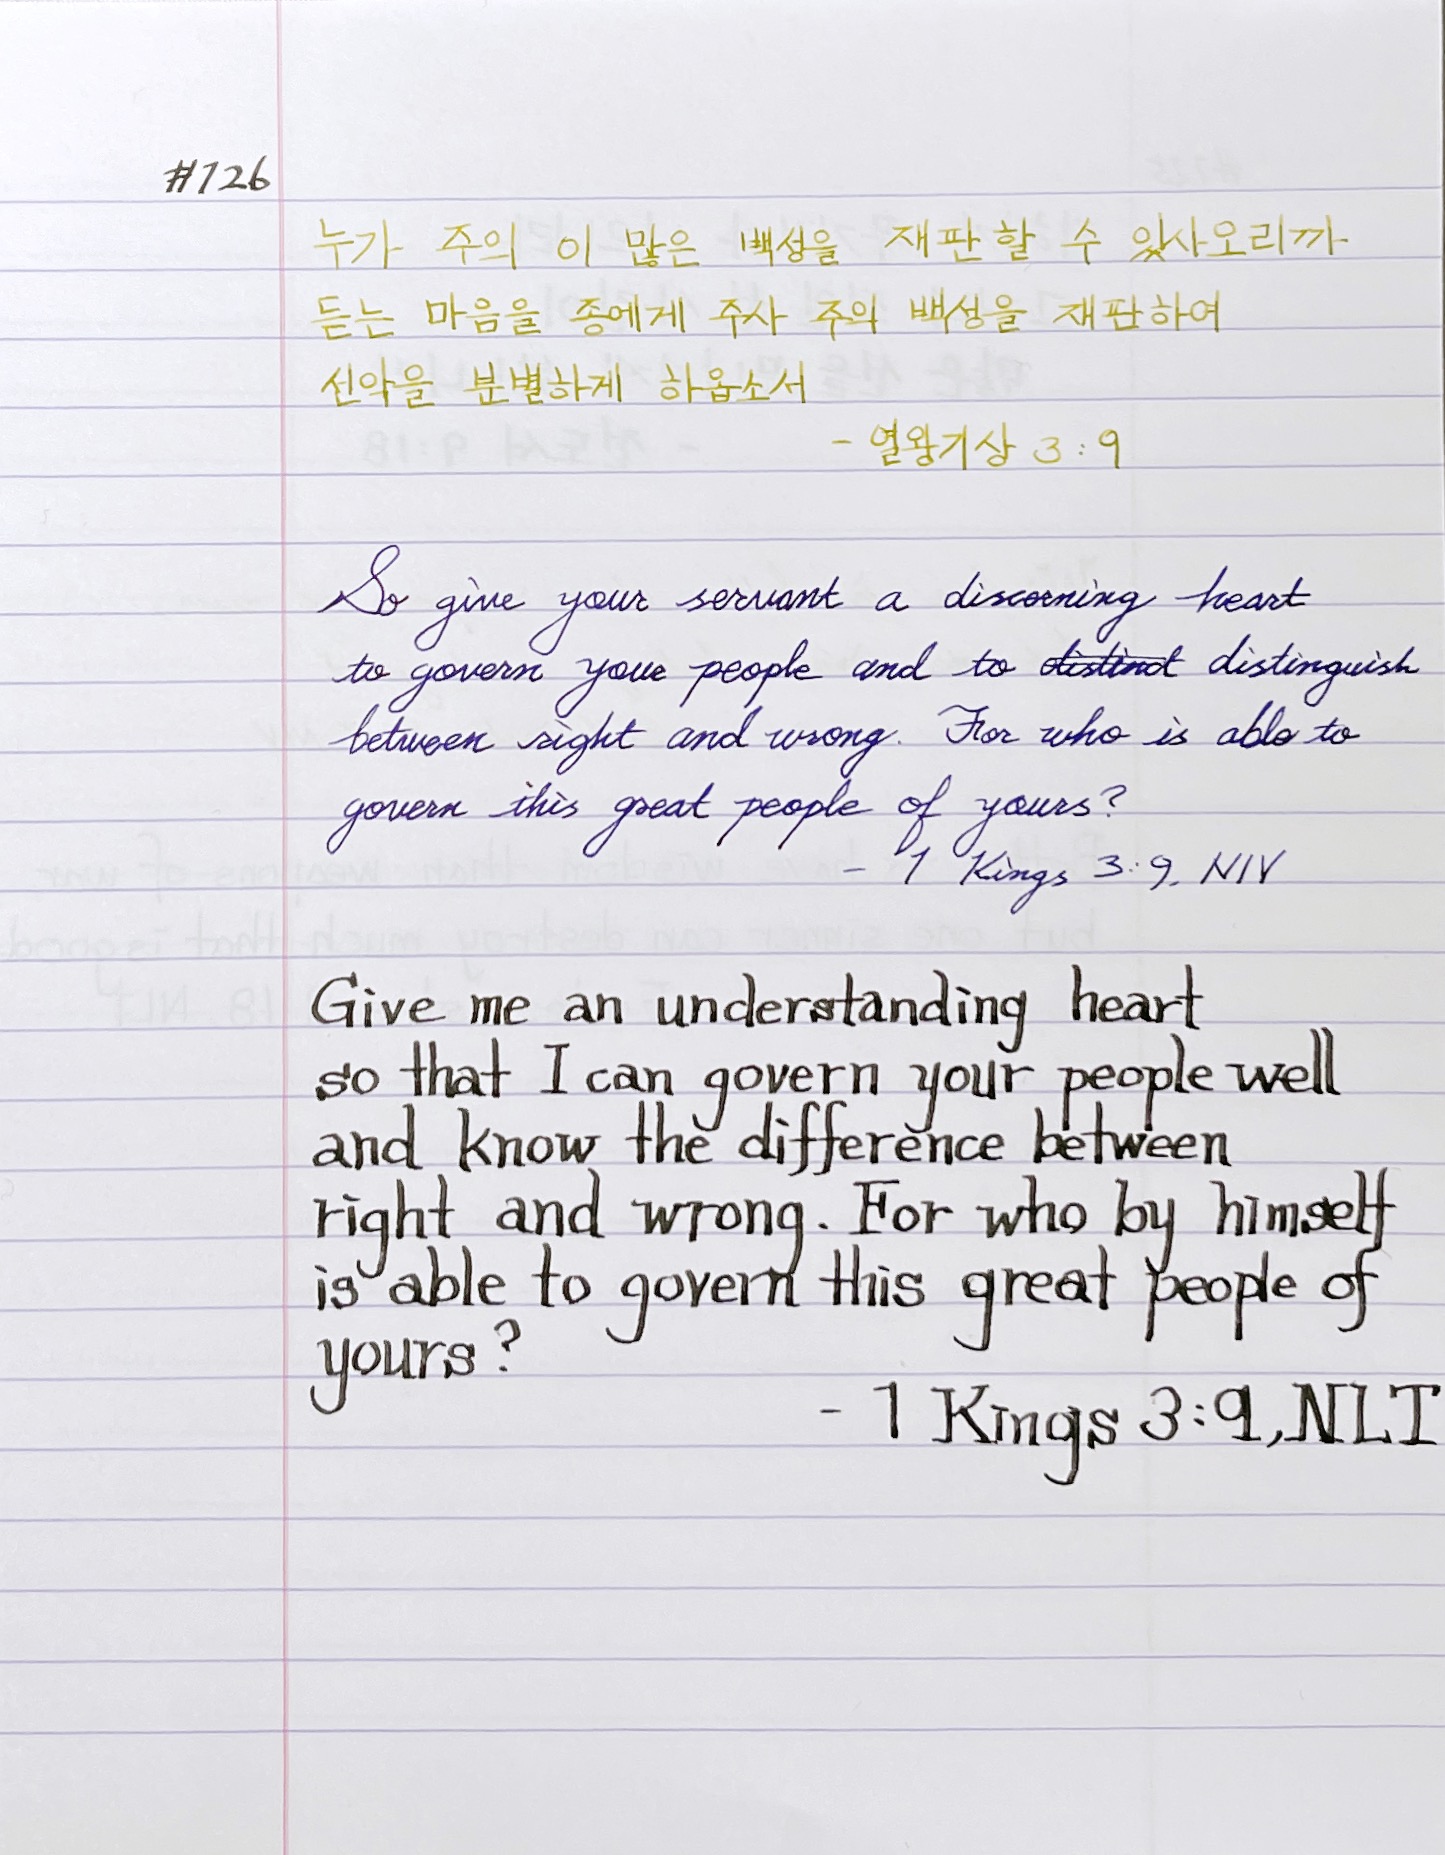 #126
누가 주의 이 많은 백성을 재판할 수 있사오리까
듣는 마음을 종에게 주사 주의 백성을 재판하여
선악을 분별하게 하옵소서
- 열왕기상 3:9
So give your servant a discerning heart
to govern your people and to distinct distinguish
between right and wrong. For who is able to
govern this great people of yours?
- 1 Kings 3:9. NIV
Give me an understanding heart
so that I can govern your people well
and know the difference between
right and wrong. For who by himself
is able to govern this great people of
yours?
- 1 Kings 3:9, NLT